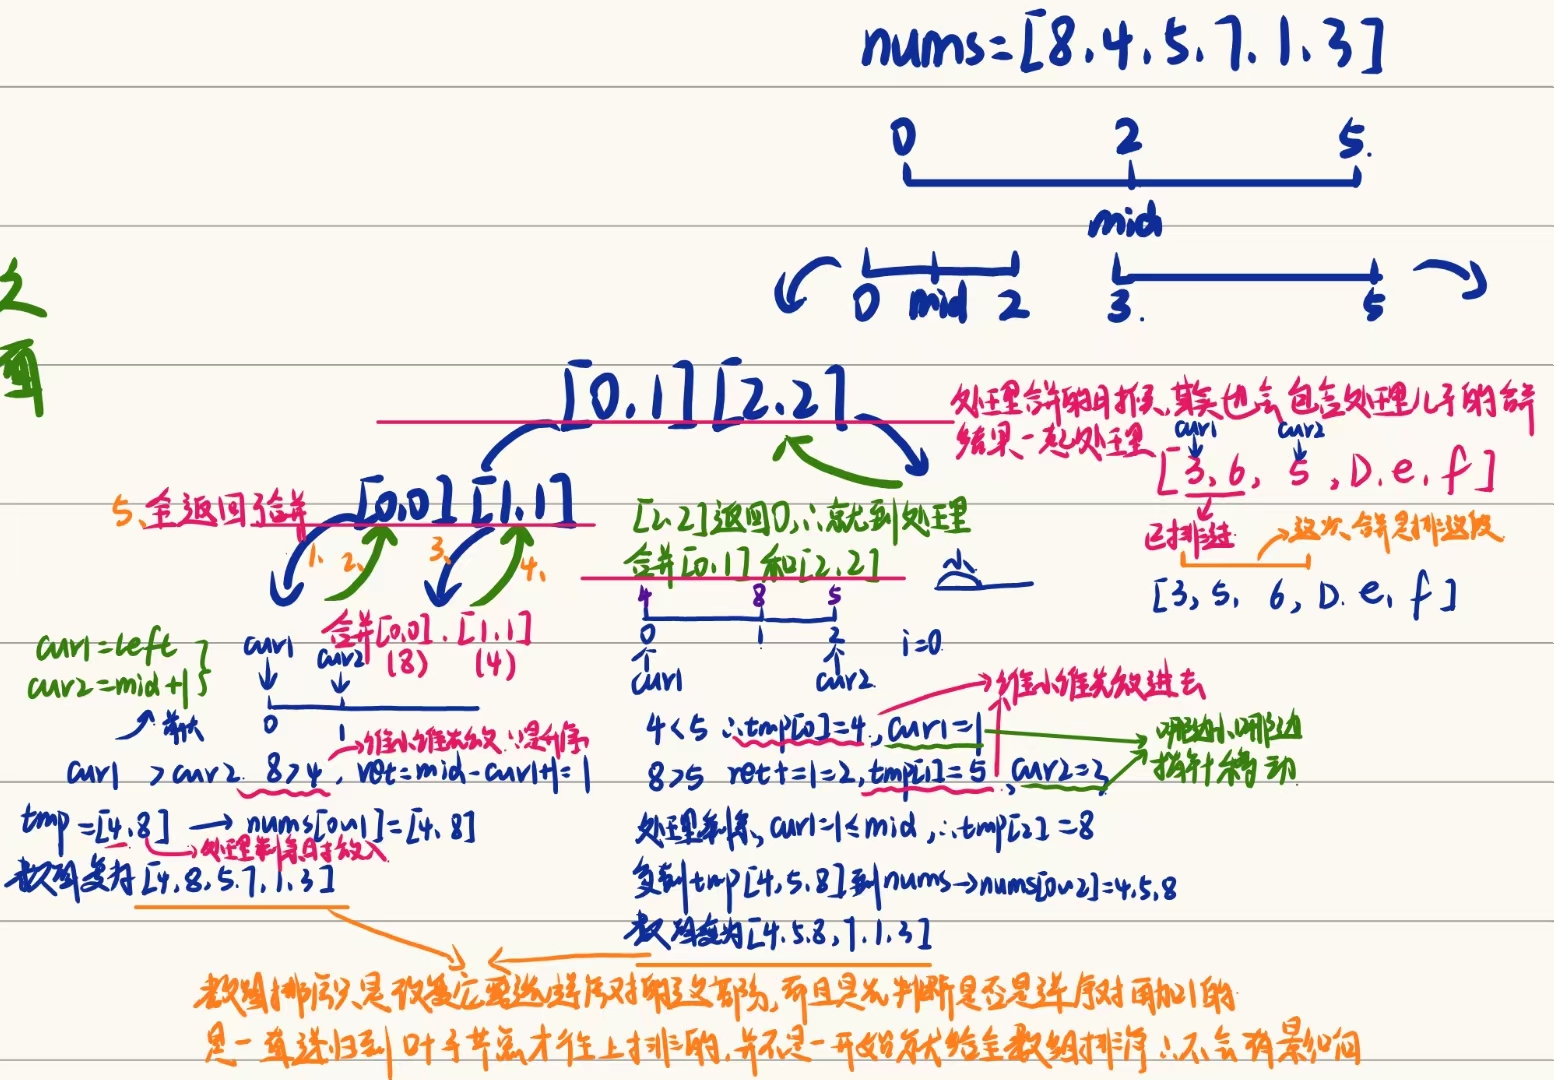 nums=[8.4.5.7.1.3]
0 2 5.
mid
0 mid 2 3. 5
[0.1][2.2]
处理合并的时候,其实也会包含处理儿子的合并
结果一起处理
cur1 cur2
[3,6, 5,D.e.f]
已排过
这次合并是排这段
[3,5. 6,D.e,f]
5、全返回了合并
[0,0][1,1]
1、 2、 3、 4、
[2.2]返回0,∴就到处理
合并[0.1]和[2.2]
合并[0.0].[1.1]
(8) (4)
cur1=left
cur2=mid+1
cur1 cur2
0 1
cur1 >cur2. 8>4, ret=mid-cur1+1=1
谁小谁先放∵是升序
tmp=[4.8] → nums[0~1]=[4.8]
处理剩余时放入
数组变为[4,8,5.7,1.3]
4 8 5
0 1 2 i=0
cur1 cur2
小
4<5 ∴tmp[0]=4,cur1=1
谁小谁先放进去
8>5 ret+=1=2,tmp[1]=5,cur2=3
哪边小哪边
指针移动
处理剩余,cur1=1≤mid,∴tmp[2]=8
复制tmp[4,5,8]到nums→nums[0~2]=4,5,8
数组变为[4.5.8,7.1.3]
数组排序只是改变它要逆序对的这部分,而且是先判断是否是逆序对再加1的
是一直递归到叶子节点才往上排的,并不是一开始就给全数组排序∴不会有影响